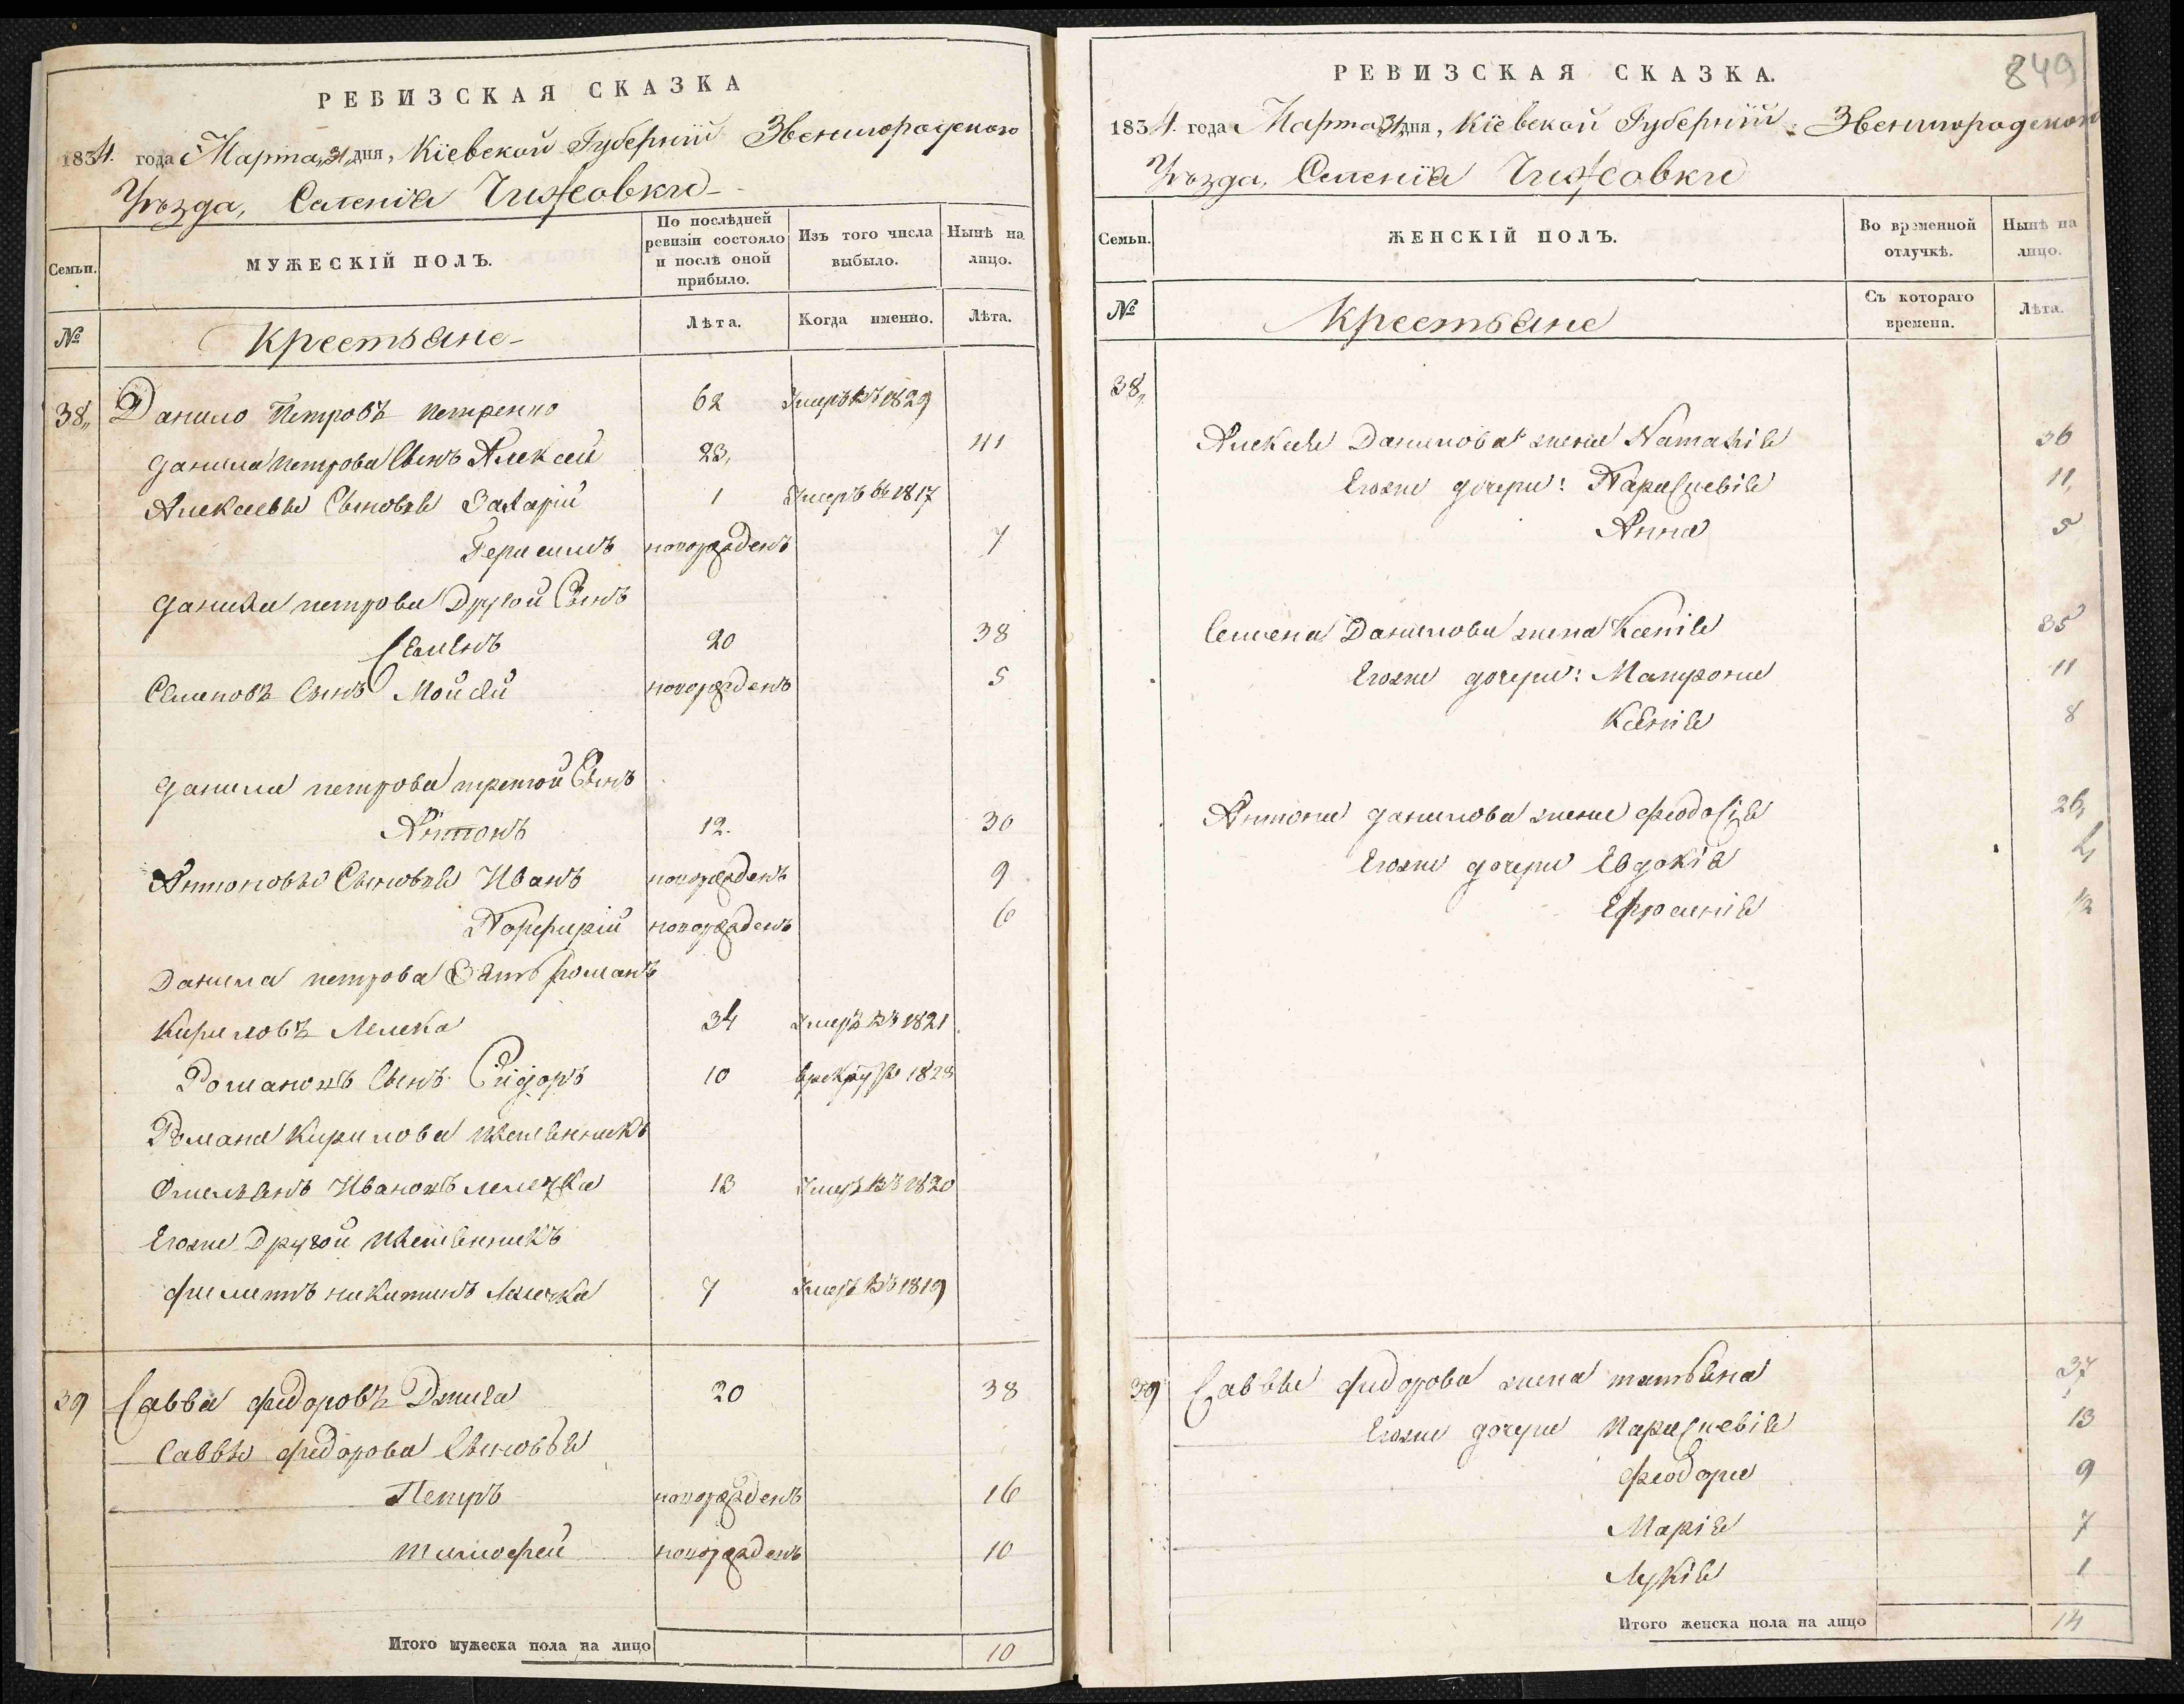 РЕВИЗСКАЯ СКАЗКА
1834. года Марта 31 дня, Кіевской Губерніи Звенигородскаго
Уѣзда, Селенія Чижовки
Семьи.
МУЖЕСКІЙ ПОЛЪ.
По послѣдней ревизіи состояло и послѣ оной прибыло.
Изъ того числа выбыло.
Нынѣ на лицо.
№
Крестьяне
Лѣта.
Когда именно.
Лѣта.
38,, Данило Петровъ Петренко 62 Умеръ въ 1829
Данила Петрова Сынъ Алексей 23, 41
Алексеевы Сыновья Захарій 1 Умеръ въ 1817
Герасимъ новорожденъ 7
Данила петрова Другой Сынъ
Семенъ 20 38
Семеновъ Сынъ Мойсей новорожденъ 5
Данила петрова третой Сынъ
Антонъ 12. 30
Антоновы Сыновья Иванъ новорожденъ 9
Порфирій новорожденъ 6
Данила петрова Зять Романъ
Кириловъ Лелека 34 Умеръ въ 1821
Романовъ Сынъ Сидоръ 10 врекруты 1828
Романа Кирилова племянникъ
Омельянъ Ивановъ 13 Умеръ въ 1820
Егоже Другой племянникъ
Филиппъ никитинъ 7 Умеръ въ 1819
39 Савва Федоровъ Джига 20 38
Саввы Федорова Сыновья
Петръ новорожденъ 16
Тимофей новорожденъ 10
Итого мужеска пола на лицо 10
849
РЕВИЗСКАЯ СКАЗКА.
1834. года Марта 31 дня, Кіевской Губерніи Звенигородскаго
Уѣзда, Селенія Чижовки
Семьи.
ЖЕНСКІЙ ПОЛЪ.
Во временной отлучкѣ.
Нынѣ на лицо.
№
Крестьяне
Съ котораго времени.
Лѣта.
38,,
Алексея Данилова жена Наталія 36
Егоже дочери: Параскевія 11,
Анна 5
Семена Данилова жена Ксенія 35
Егоже дочери: Матрона 11
Ксенія 8
Антона данилова жена Феодосія 26,
Егоже дочери Евдокія
Ефросинія 1/2
39 Саввы Федорова жена татьяна 37
Егоже дочери Параскевія 13
Феодора 9
Марія 7
Лукія 1
Итого женска пола на лицо 14